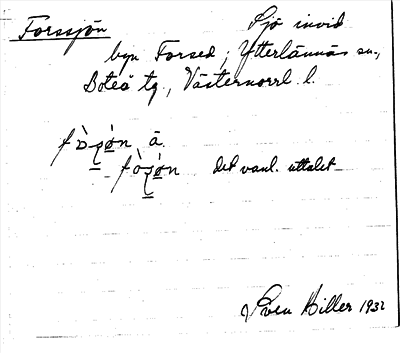 Forssjön Sjö invid
byn Forsed; Ytterlännäs sn.,
Boteå tg., Västernorrl. l.
det vanl. uttalet
Sven Hiller 1932